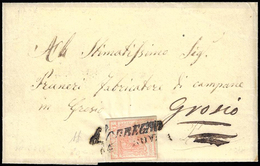 Stimatissimo Sig.
Pruneri Fabricatore di campane
in Grosio
Grosio
MORBEGNO